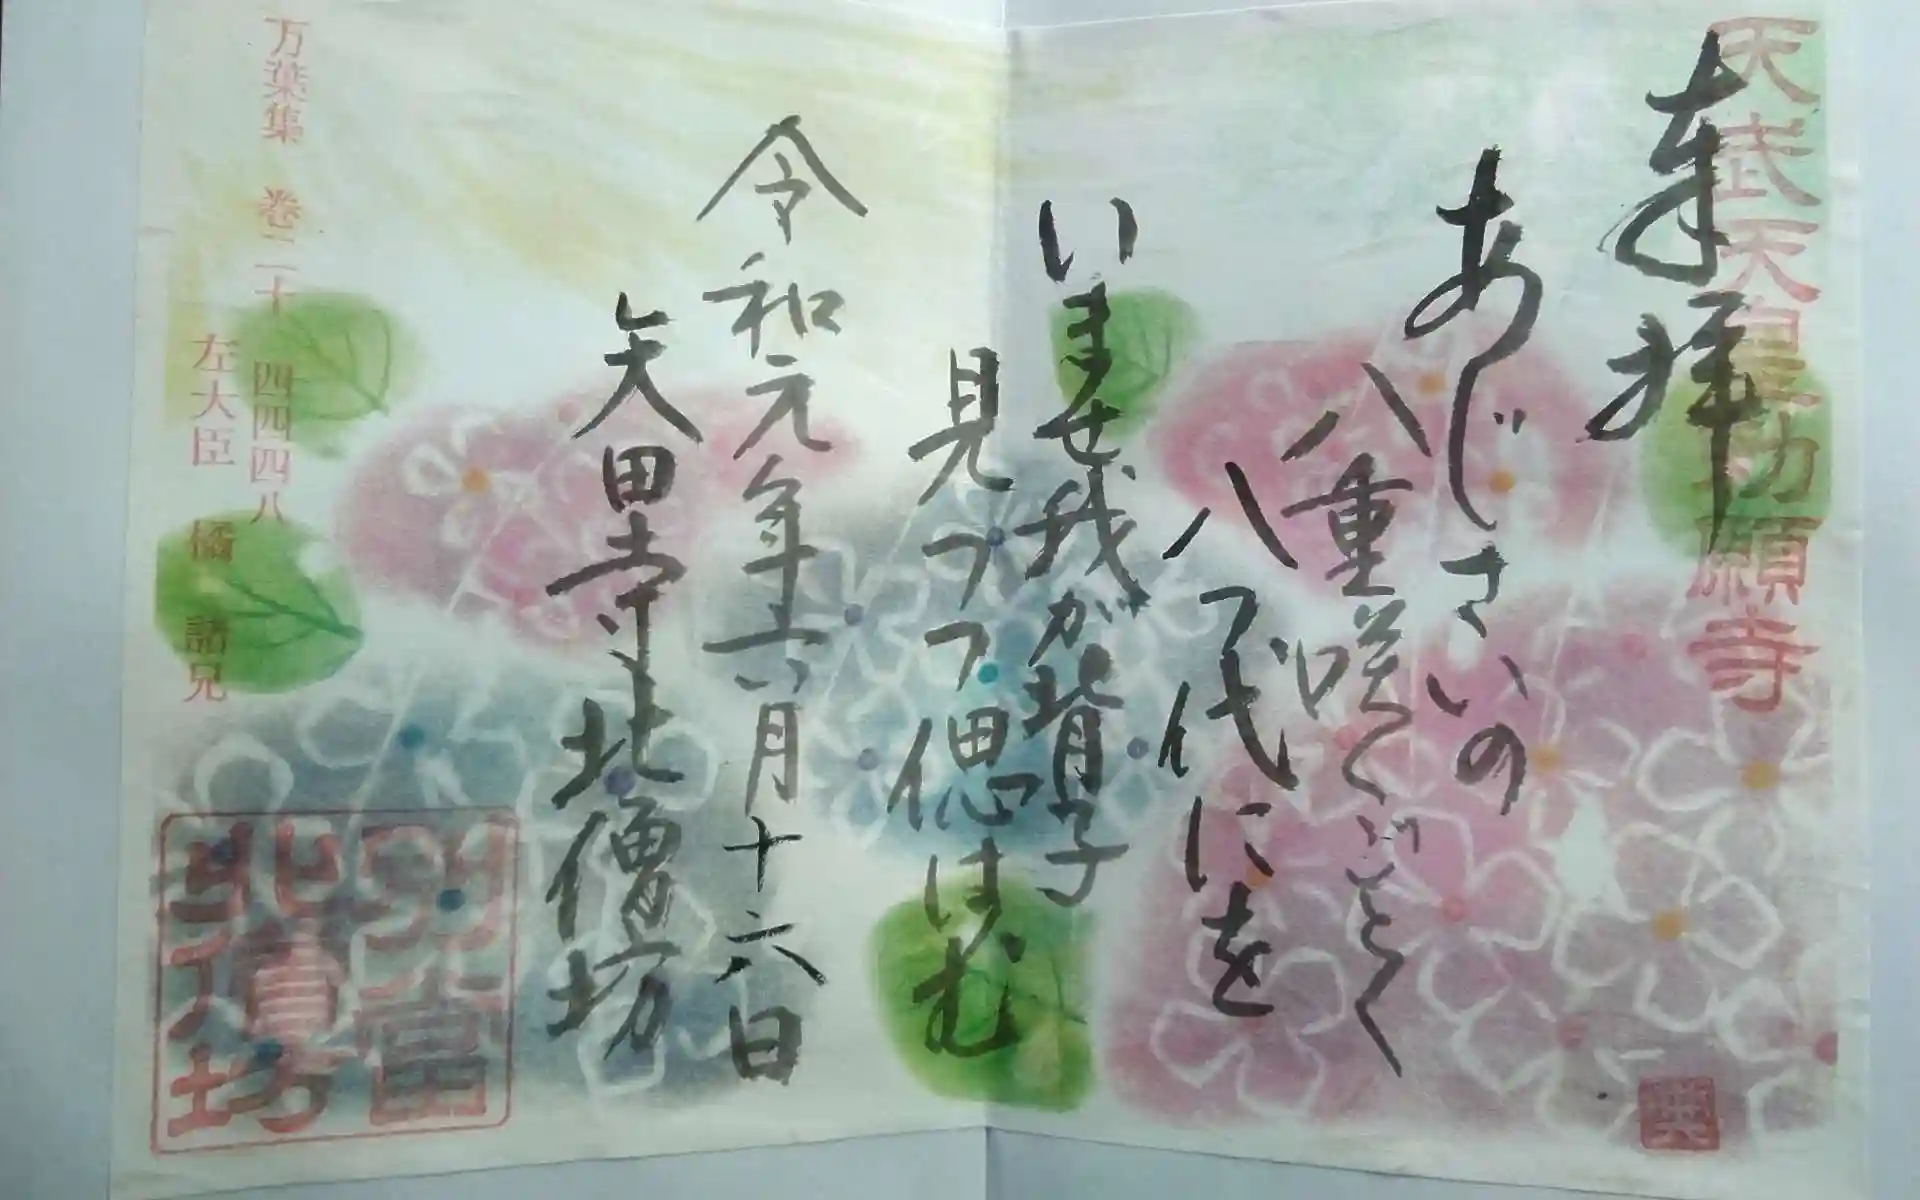 天武天皇勅願寺
奉拝
あじさいの
八重咲くごとく
八つ代にを
いませ我が背子
見つつ偲はむ
令和元年六月十六日
矢田寺北僧坊
万葉集 巻二十 四四四八
左大臣 橘 諸兄
北僧坊